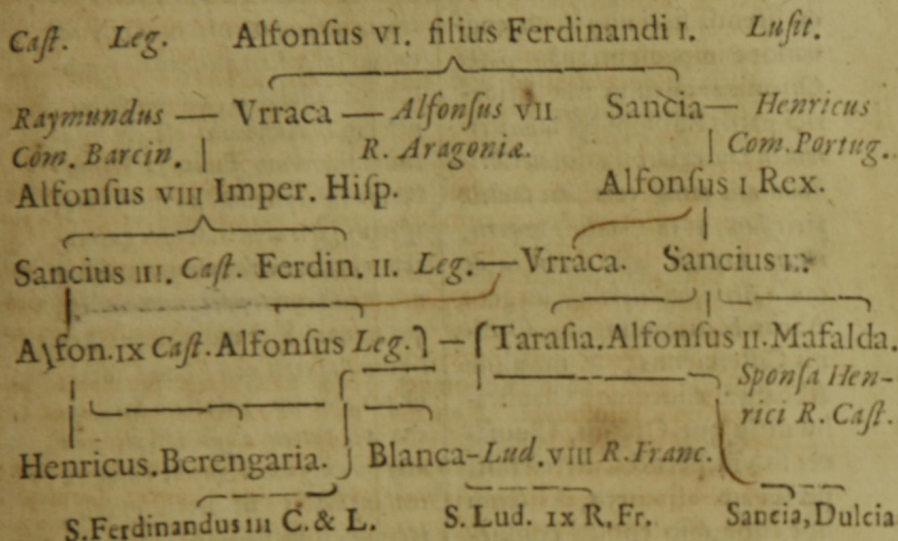 Caſt. Leg. Alfonſus VI. filius Ferdinandi I. Luſit.
Raymundus — Vrraca — Alfonſus VII Sancia — Henricus
Com. Barcin. R. Aragoniæ. Com. Portug.
Alfonſus VIII Imper. Hiſp. Alfonſus I Rex.
Sancius III. Caſt. Ferdin. II. Leg. — Vrraca. Sancius I.
Alfon. IX Caſt. Alfonſus Leg. — Taraſia. Alfonſus II. Mafalda.
Sponſa Hen-
rici R. Caſt.
Henricus. Berengaria. Blanca - Lud. VIII R. Franc.
S. Ferdinandus III C. & L. S. Lud. IX R. Fr. Sancia, Dulcia